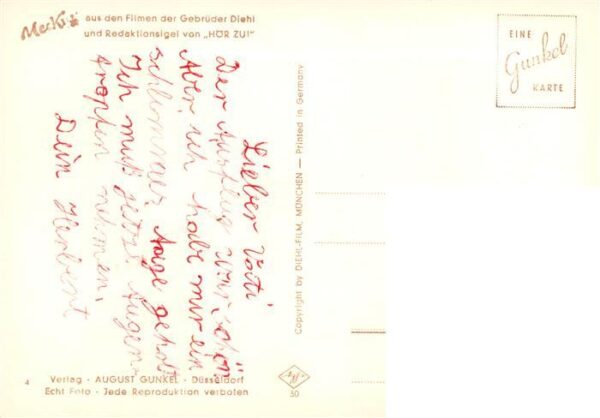 Mecki aus den Filmen der Gebrüder Diehl
und Redaktionsigel von „HÖR ZU!"
EINE
Gunkel
KARTE
Lieber Vati
Der Ausflug war schön
Aber ich habe mir ein
schlimmes Auge geholt
Ich muß jetzt Augen-
tropfen nehmen.
Dein Herbert
Copyright by DIEHL-FILM, MÜNCHEN — Printed in Germany
4
Verlag · AUGUST GUNKEL · Düsseldorf
Echt Foto · Jede Reproduktion verboten
Agfa
50